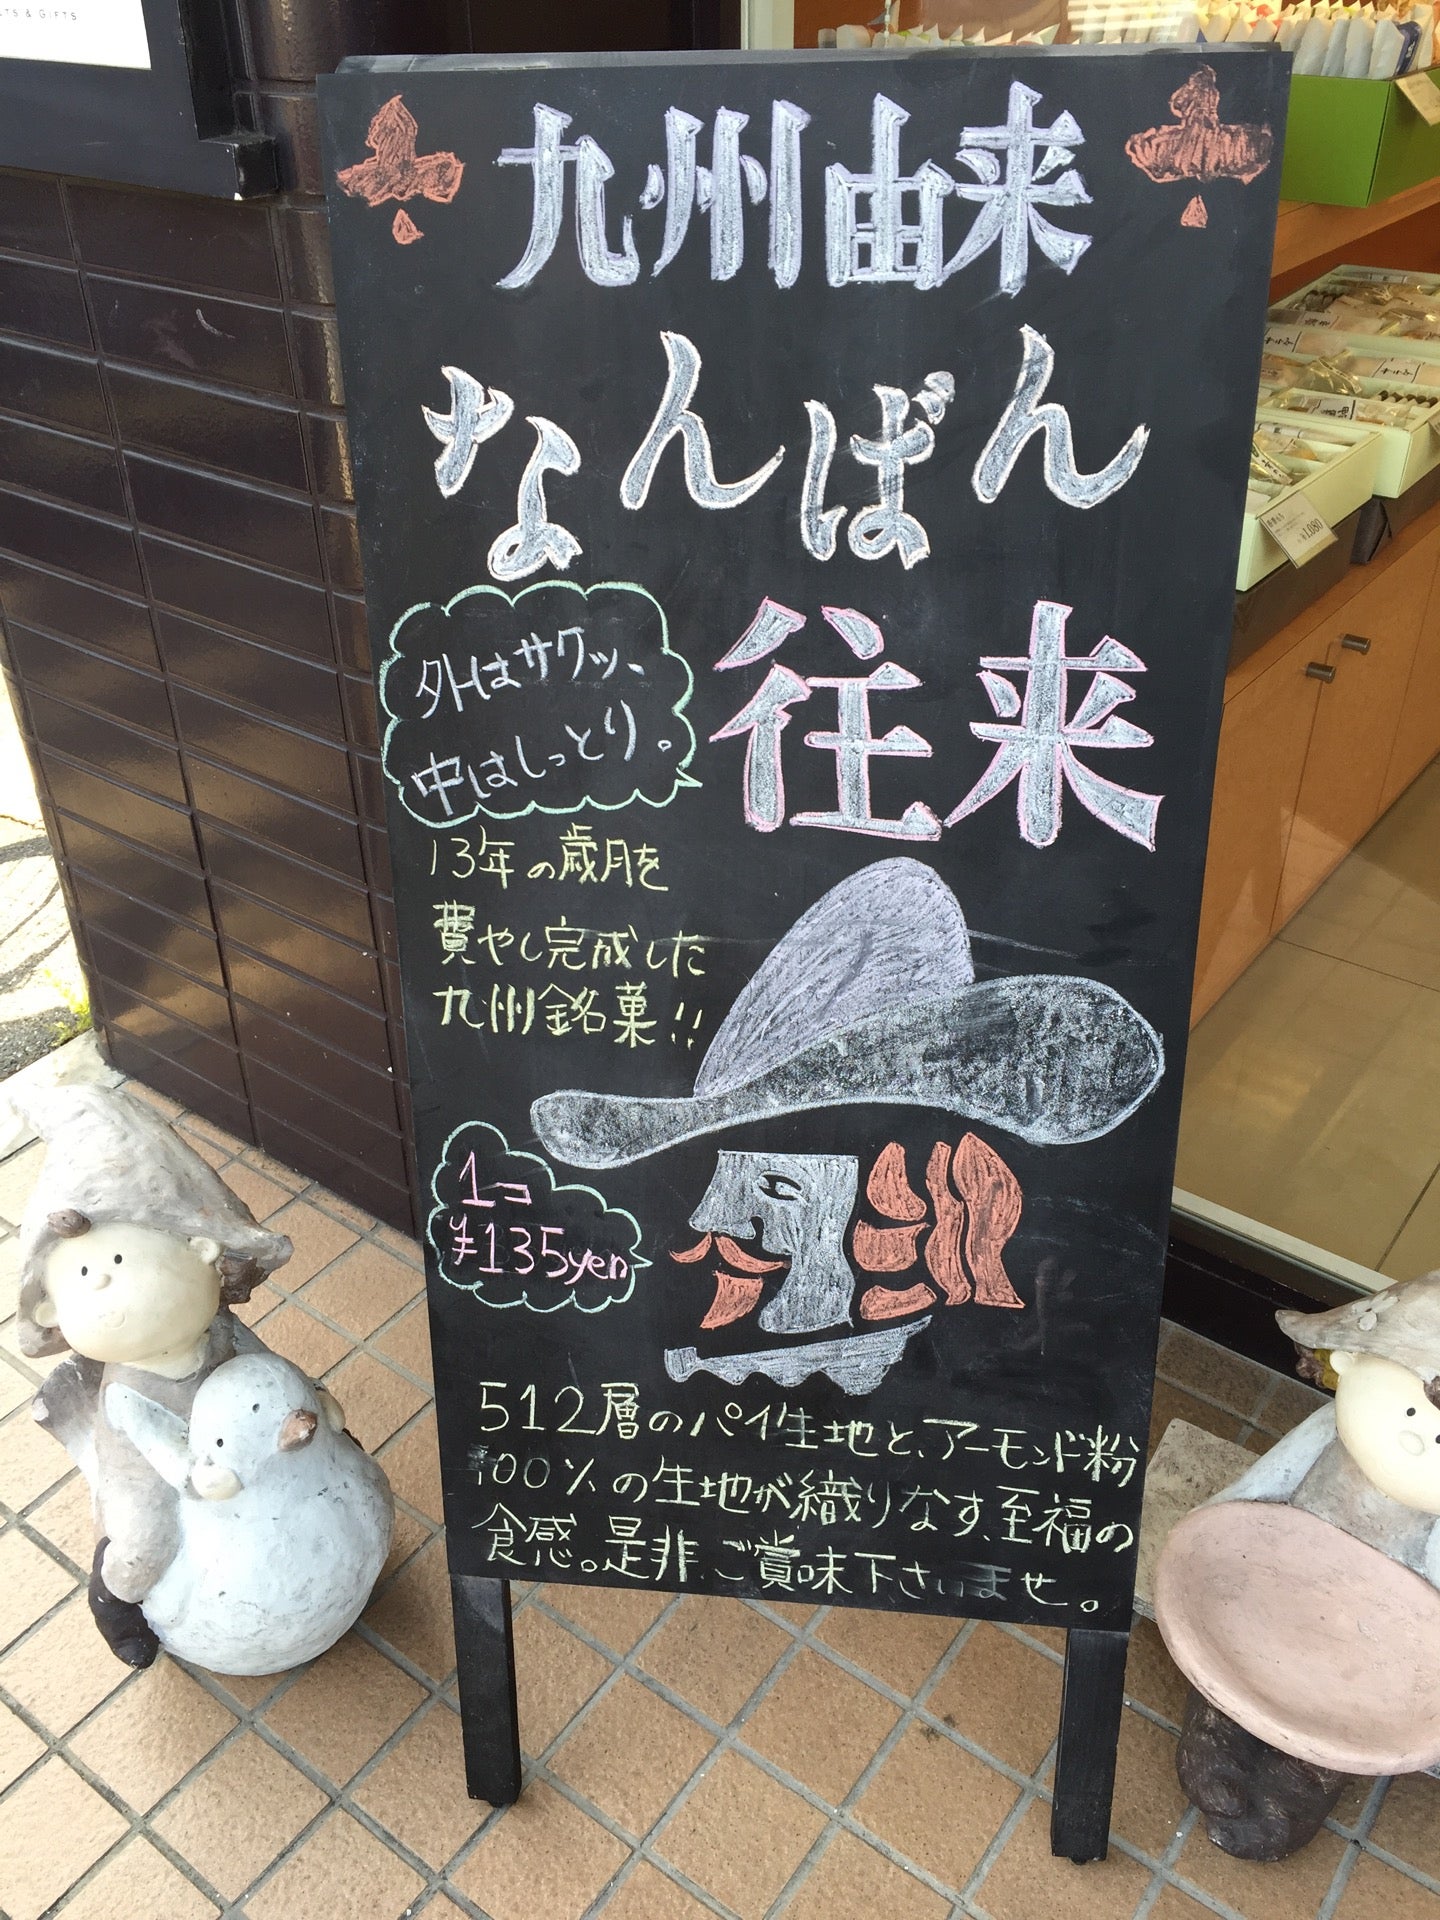 LTS & GIFTS
九州由来
なんばん
往来
外はサクッ、
中はしっとり。
13年の歳月を
費やし完成した
九州銘菓!!
1コ
¥135yen
512層のパイ生地と、アーモンド粉
100%の生地が織りなす、至福の
食感。是非、ご賞味下さいませ。
¥1,080